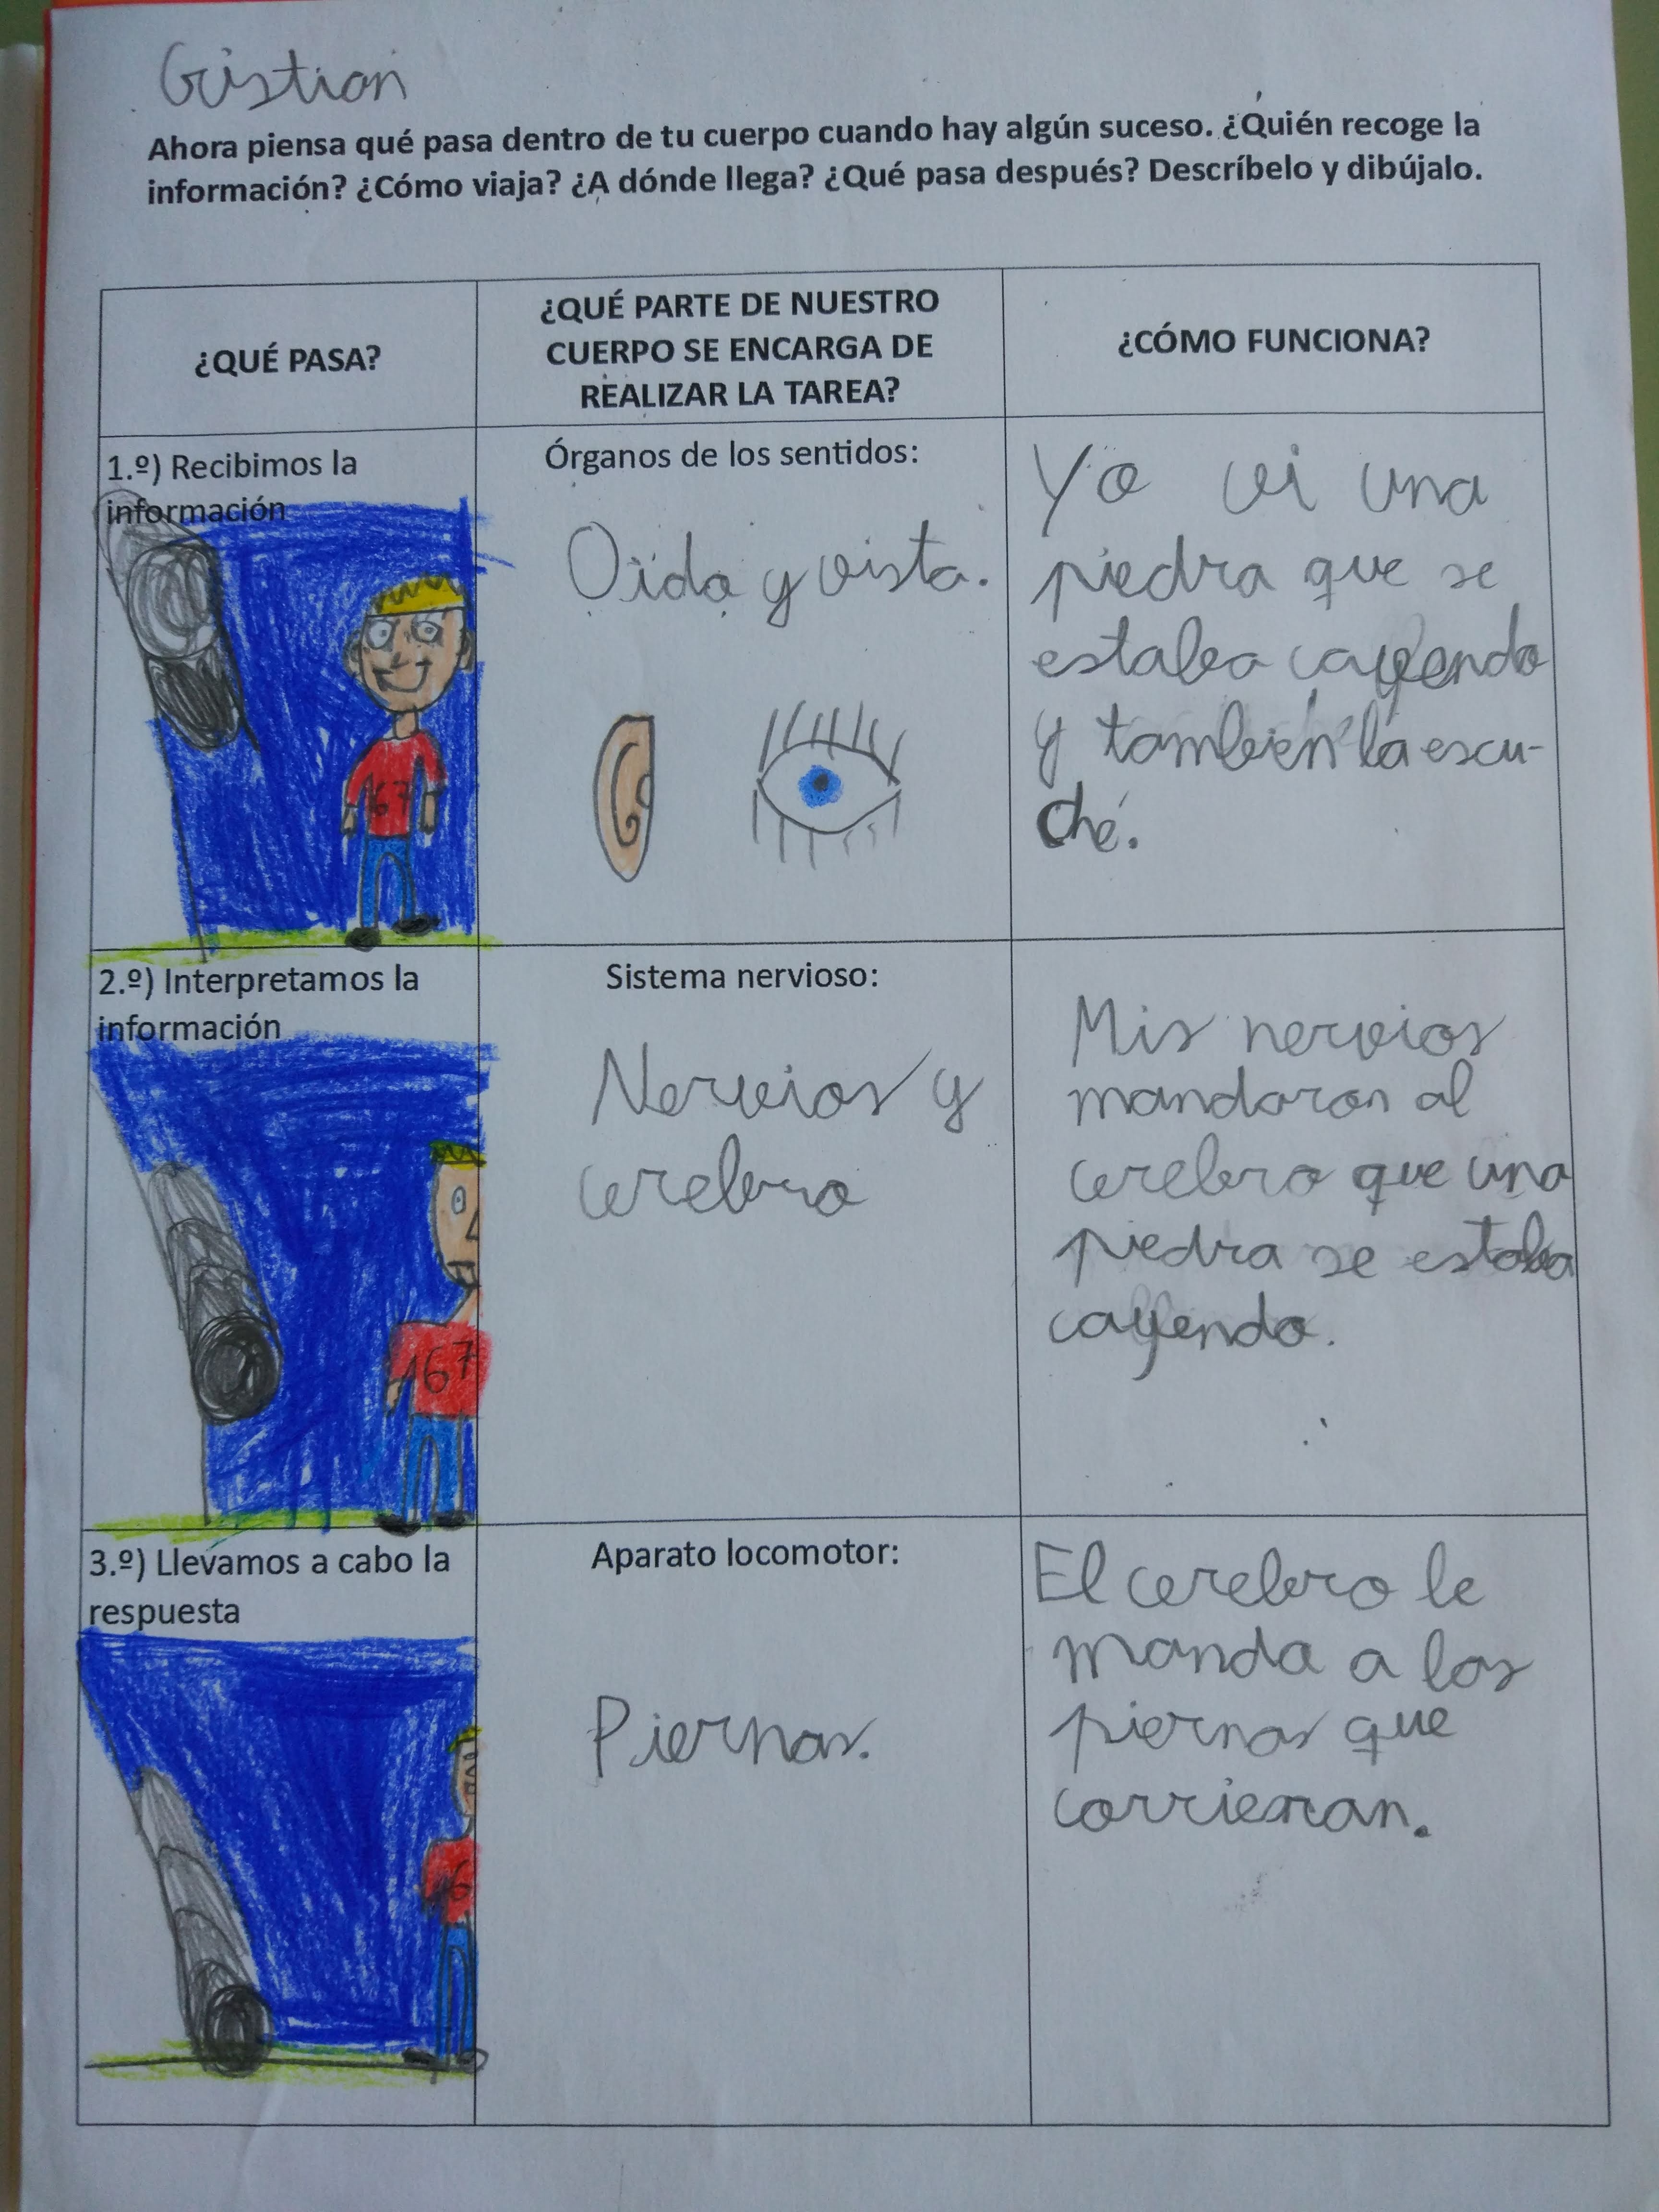 Cristian
Ahora piensa qué pasa dentro de tu cuerpo cuando hay algún suceso. ¿Quién recoge la
información? ¿Cómo viaja? ¿A dónde llega? ¿Qué pasa después? Descríbelo y dibújalo.
¿QUÉ PASA?
¿QUÉ PARTE DE NUESTRO
CUERPO SE ENCARGA DE
REALIZAR LA TAREA?
¿CÓMO FUNCIONA?
1.º) Recibimos la
información
167
Órganos de los sentidos:
Oído y vista.
Yo vi una
piedra que se
estaba cayendo
y también la escu-
ché.
2.º) Interpretamos la
información
167
Sistema nervioso:
Nervios y
cerebro
Mis nervios
mandaron al
cerebro que una
piedra se estaba
cayendo.
3.º) Llevamos a cabo la
respuesta
16
Aparato locomotor:
Piernas.
El cerebro le
manda a las
piernas que
corrieran.